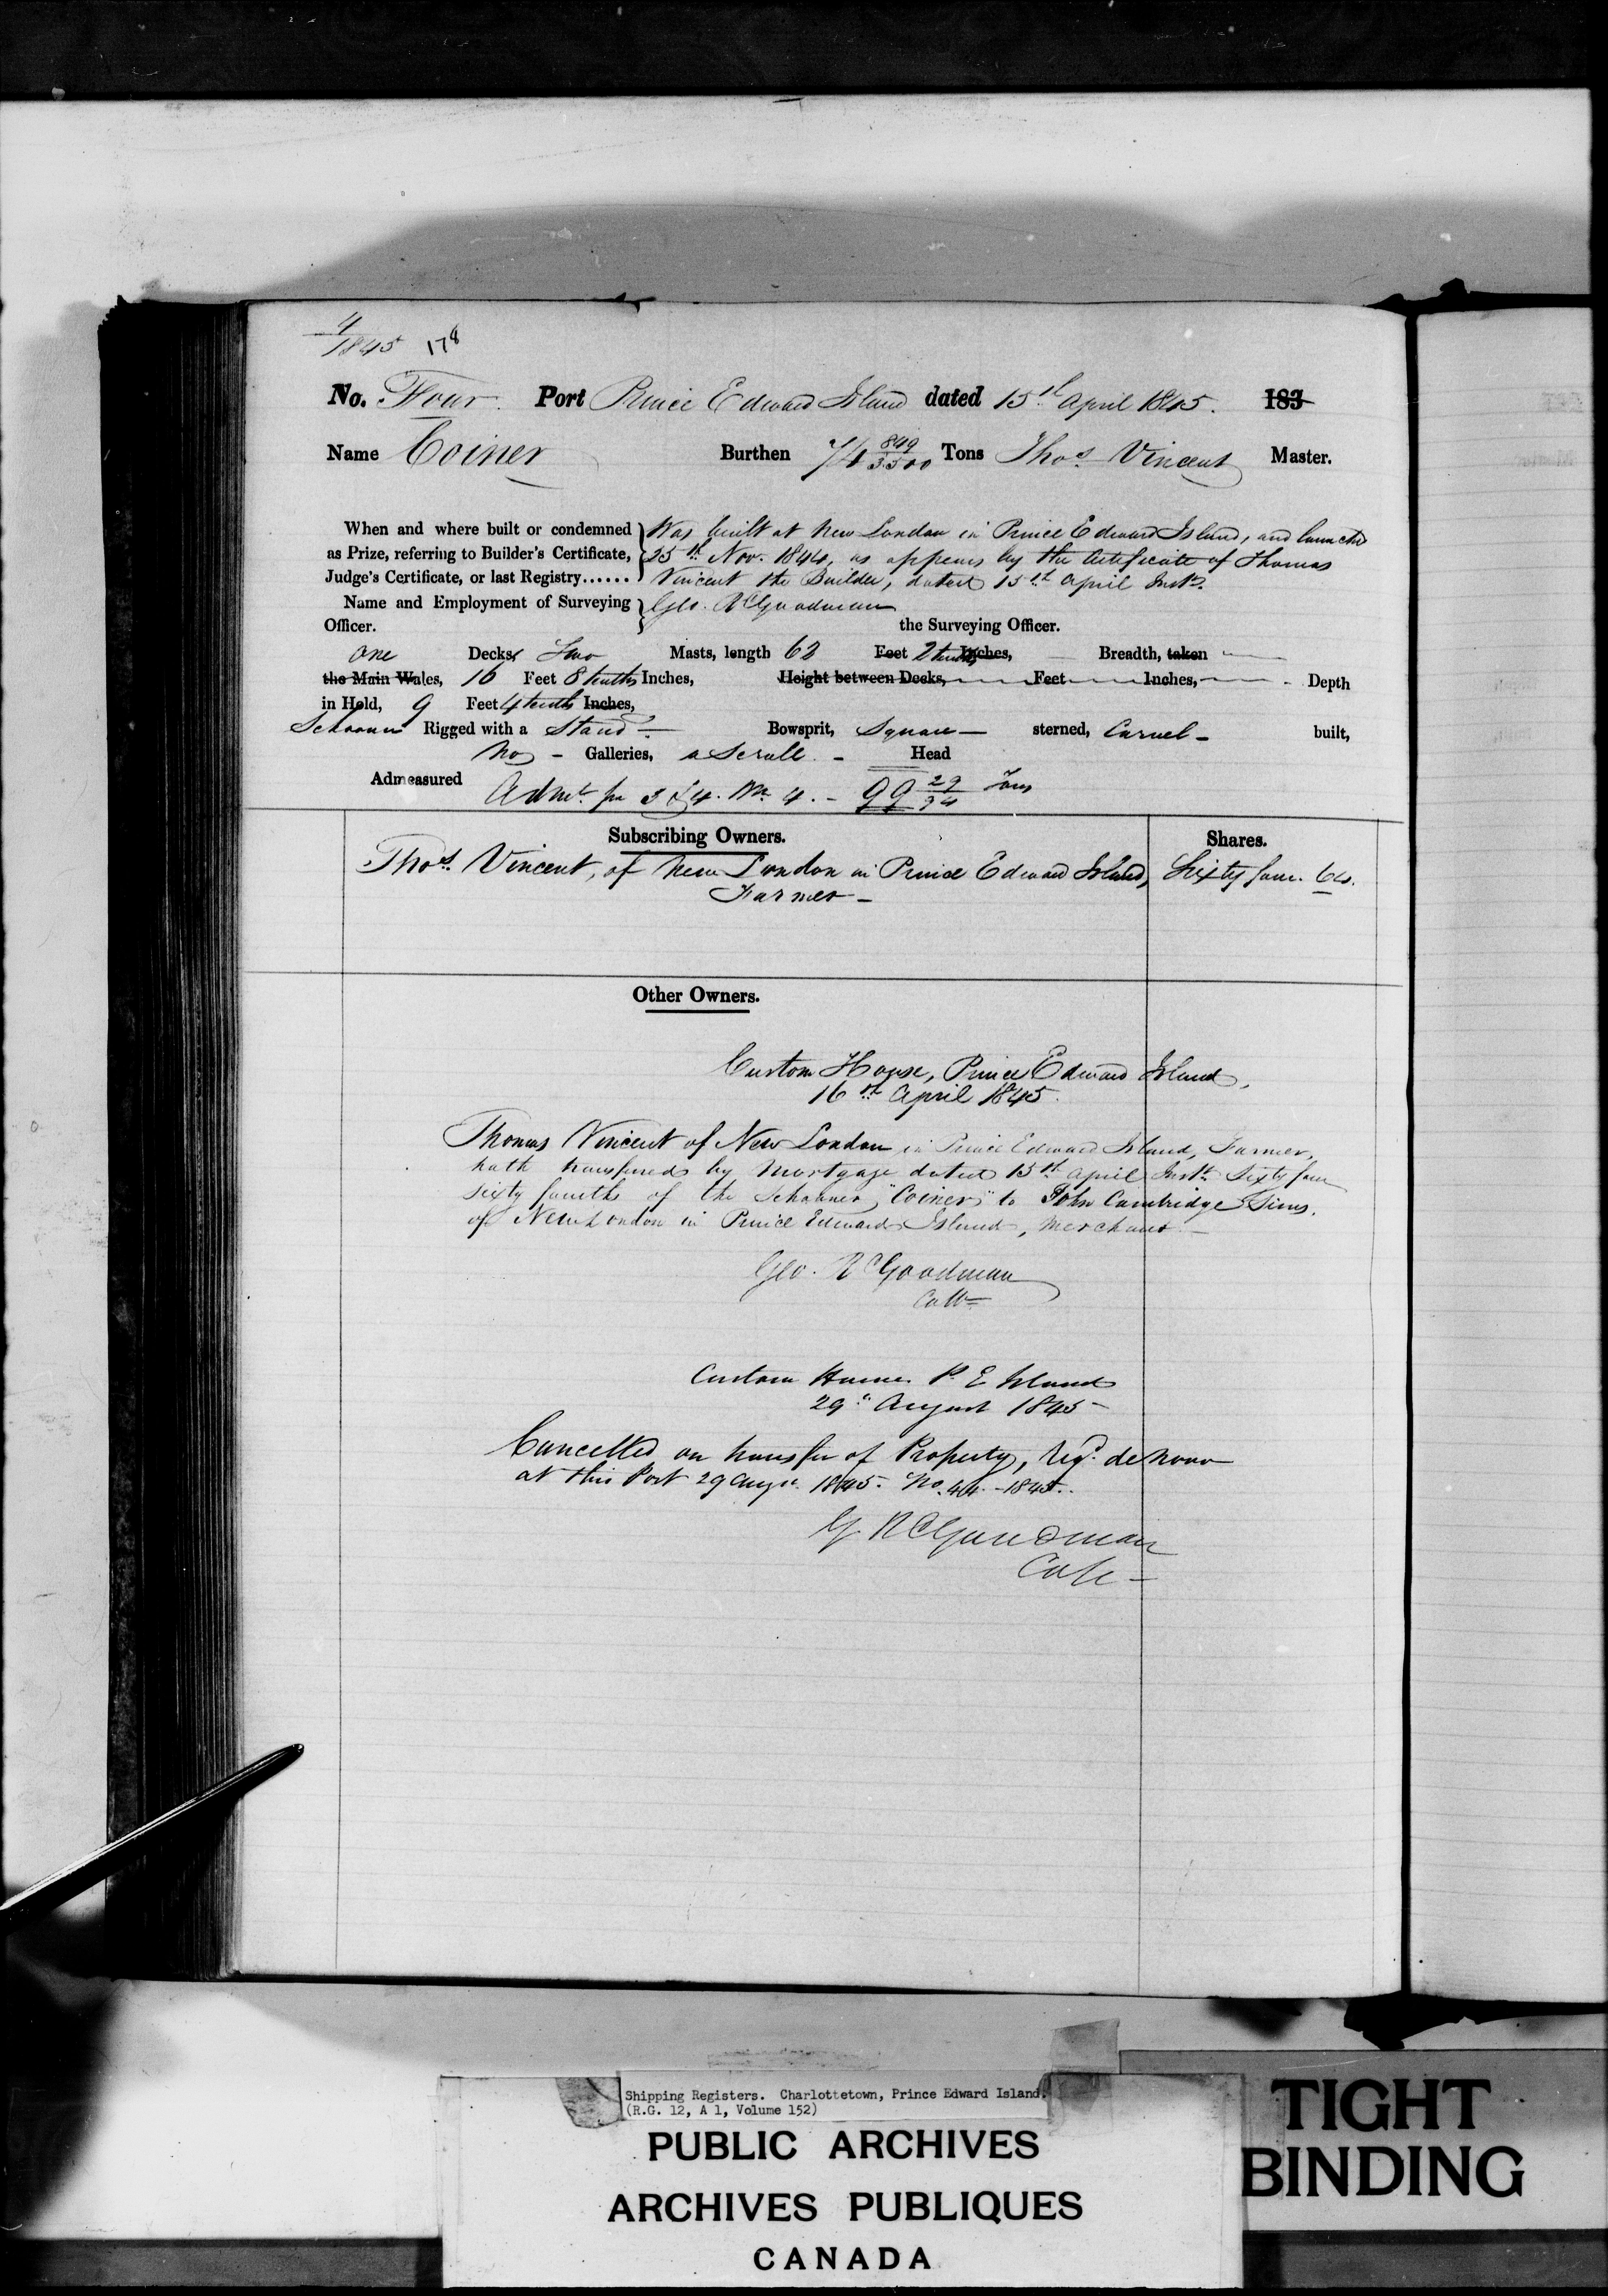 4
1845 178
No. Four. Port Prince Edward Island dated 15th April 1845. 183
Name Coiner Burthen 74 849/3500 Tons Thos Vincent Master.
When and where built or condemned Was built at New London in Prince Edward Island, and launched
as Prize, referring to Builder's Certificate, 25th Nov. 1844, as appears by the Certificate of Thomas
Judge's Certificate, or last Registry...... Vincent the Builder, dated 15th April Inst.
Name and Employment of Surveying Geo. R Goodman
Officer. the Surveying Officer.
One Decks, Two Masts, length 62 Feet 2 tenths Inches, Breadth, taken
the Main Wales, 16 Feet 8 tenths Inches, Height between Decks, Feet Inches, Depth
in Hold, 9 Feet 4 tenths Inches,
Schooner Rigged with a Stand Bowsprit, Square sterned, Carvel built,
No Galleries, a Scroll Head
Admeasured Admt. pr 3 & 4. Wm 4. - 99 29/94 Tons
Subscribing Owners. Shares.
Thos. Vincent, of New London in Prince Edward Island, Sixty four. 64.
Farmer -
Other Owners.
Custom House, Prince Edward Island,
16th April 1845.
Thomas Vincent of New London in Prince Edward Island, Farmer,
hath transferred by Mortgage dated 15th April Inst. Sixty four
sixty fourths of the Schooner "Coiner" to John Cambridge Sims.
of New London in Prince Edward Island, Merchant
Geo. R Goodman
Collr
Custom House P. E Island
29th August 1845 -
Cancelled on transfer of Property, Regd. de novo
at this Port 29 Augt. 1845. No. 44 - 1845.
G. R Goodman
Collr
Shipping Registers. Charlottetown, Prince Edward Island.
(R.G. 12, A 1, Volume 152)
PUBLIC ARCHIVES
ARCHIVES PUBLIQUES
CANADA
TIGHT
BINDING